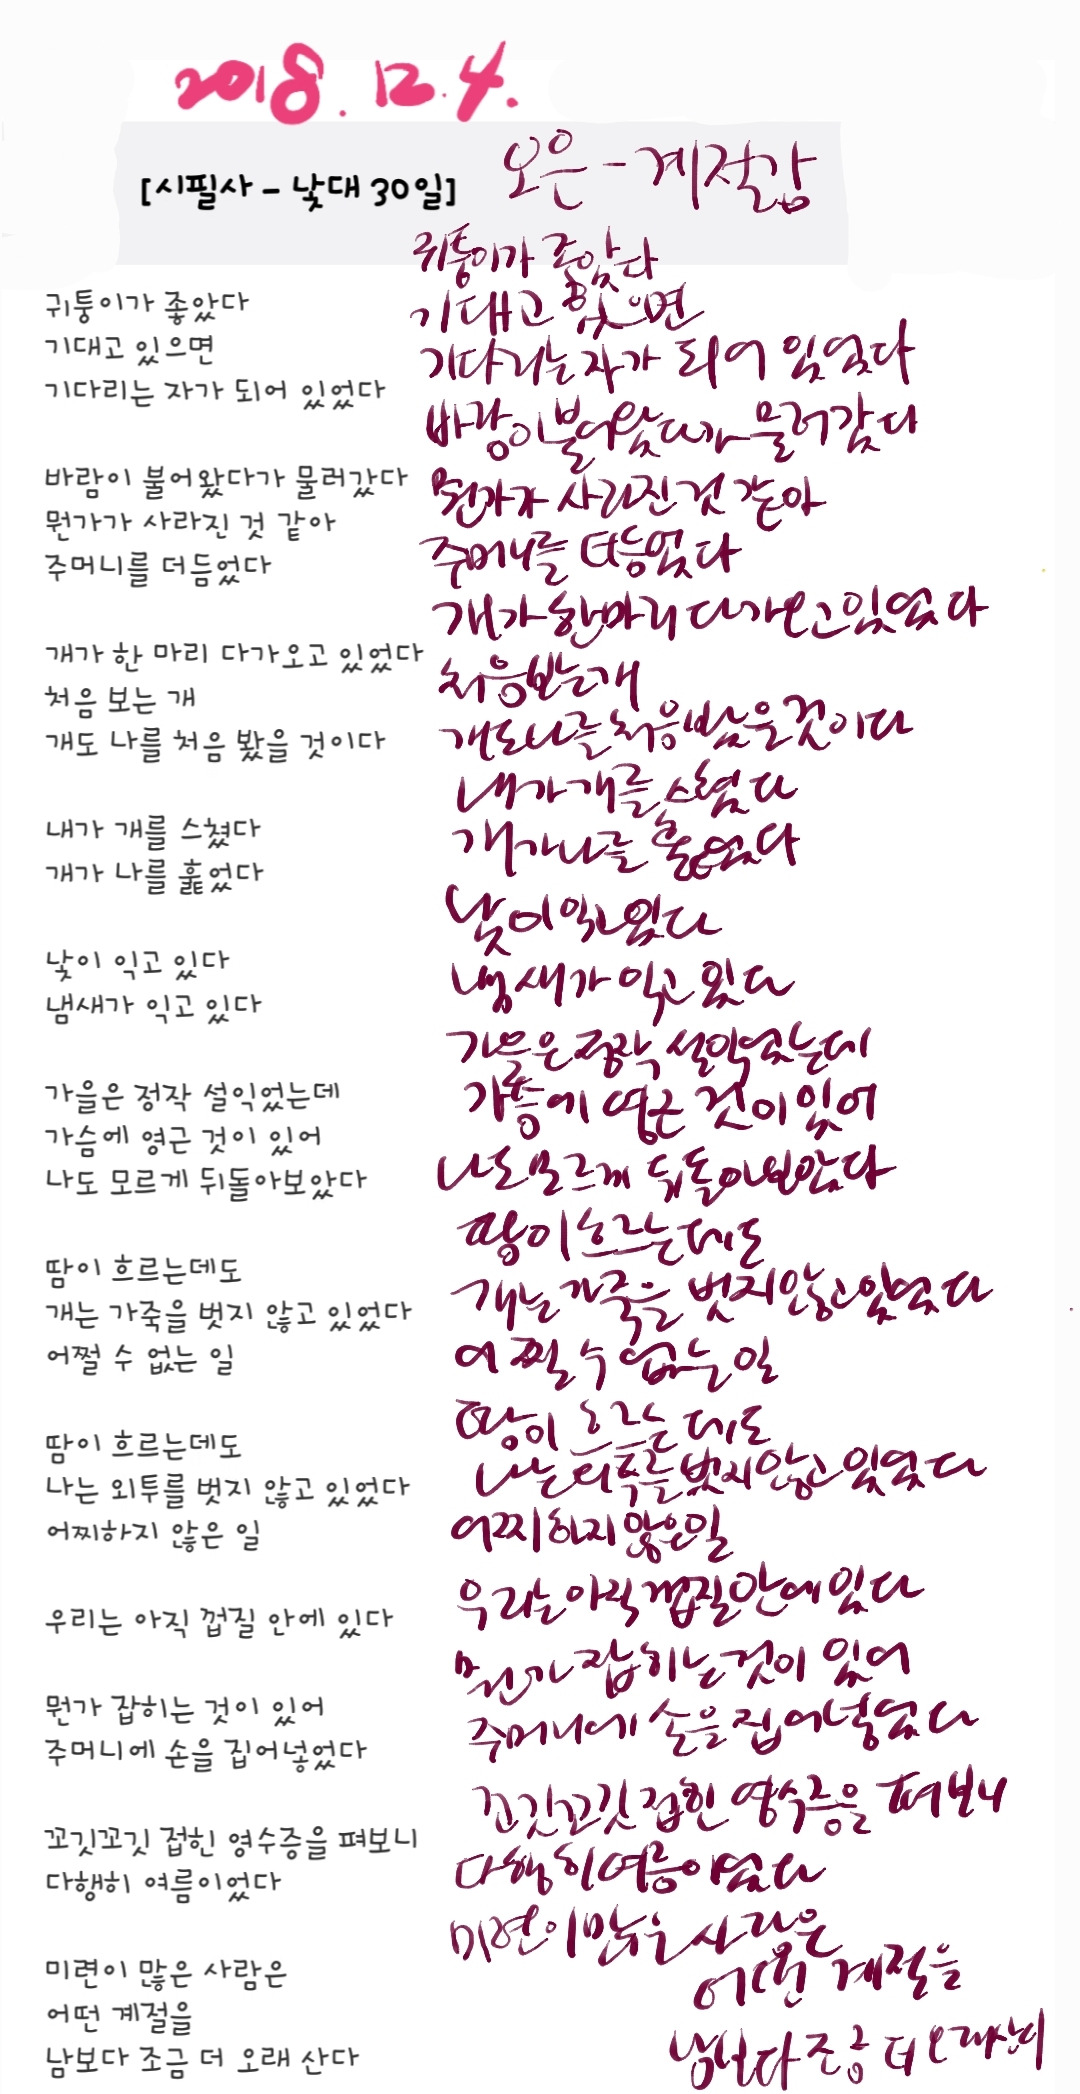 2018. 12. 4.
[시필사 - 낮대 30일]
오은 - 계절감
귀퉁이가 좋았다
기대고 있으면
기다리는 자가 되어 있었다
바람이 불어왔다가 물러갔다
뭔가가 사라진 것 같아
주머니를 더듬었다
개가 한 마리 다가오고 있었다
처음 보는 개
개도 나를 처음 봤을 것이다
내가 개를 스쳤다
개가 나를 훑었다
낮이 익고 있다
냄새가 익고 있다
가을은 정작 설익었는데
가슴에 영근 것이 있어
나도 모르게 뒤돌아보았다
땀이 흐르는데도
개는 가죽을 벗지 않고 있었다
어쩔 수 없는 일
땀이 흐르는데도
나는 외투를 벗지 않고 있었다
어찌하지 않은 일
우리는 아직 껍질 안에 있다
뭔가 잡히는 것이 있어
주머니에 손을 집어넣었다
꼬깃꼬깃 접힌 영수증을 펴보니
다행히 여름이었다
미련이 많은 사람은
어떤 계절을
남보다 조금 더 오래 산다
귀퉁이가 좋았다
기대고 있으면
기다리는 자가 되어 있었다
바람이 불어왔다가 물러갔다
뭔가가 사라진 것 같아
주머니를 더듬었다
개가 한 마리 다가오고 있었다
처음 보는 개
개도 나를 처음 봤을 것이다
내가 개를 스쳤다
개가 나를 훑었다
낮이 익고 있다
냄새가 익고 있다
가을은 정작 설익었는데
가슴에 영근 것이 있어
나도 모르게 뒤돌아보았다
땀이 흐르는데도
개는 가죽을 벗지 않고 있었다
어쩔 수 없는 일
땀이 흐르는데도
나는 외투를 벗지 않고 있었다
어찌하지 않은 일
우리는 아직 껍질 안에 있다
뭔가 잡히는 것이 있어
주머니에 손을 집어넣었다
꼬깃꼬깃 접힌 영수증을 펴보니
다행히 여름이었다
미련이 많은 사람은
어떤 계절을
남보다 조금 더 오래 산다